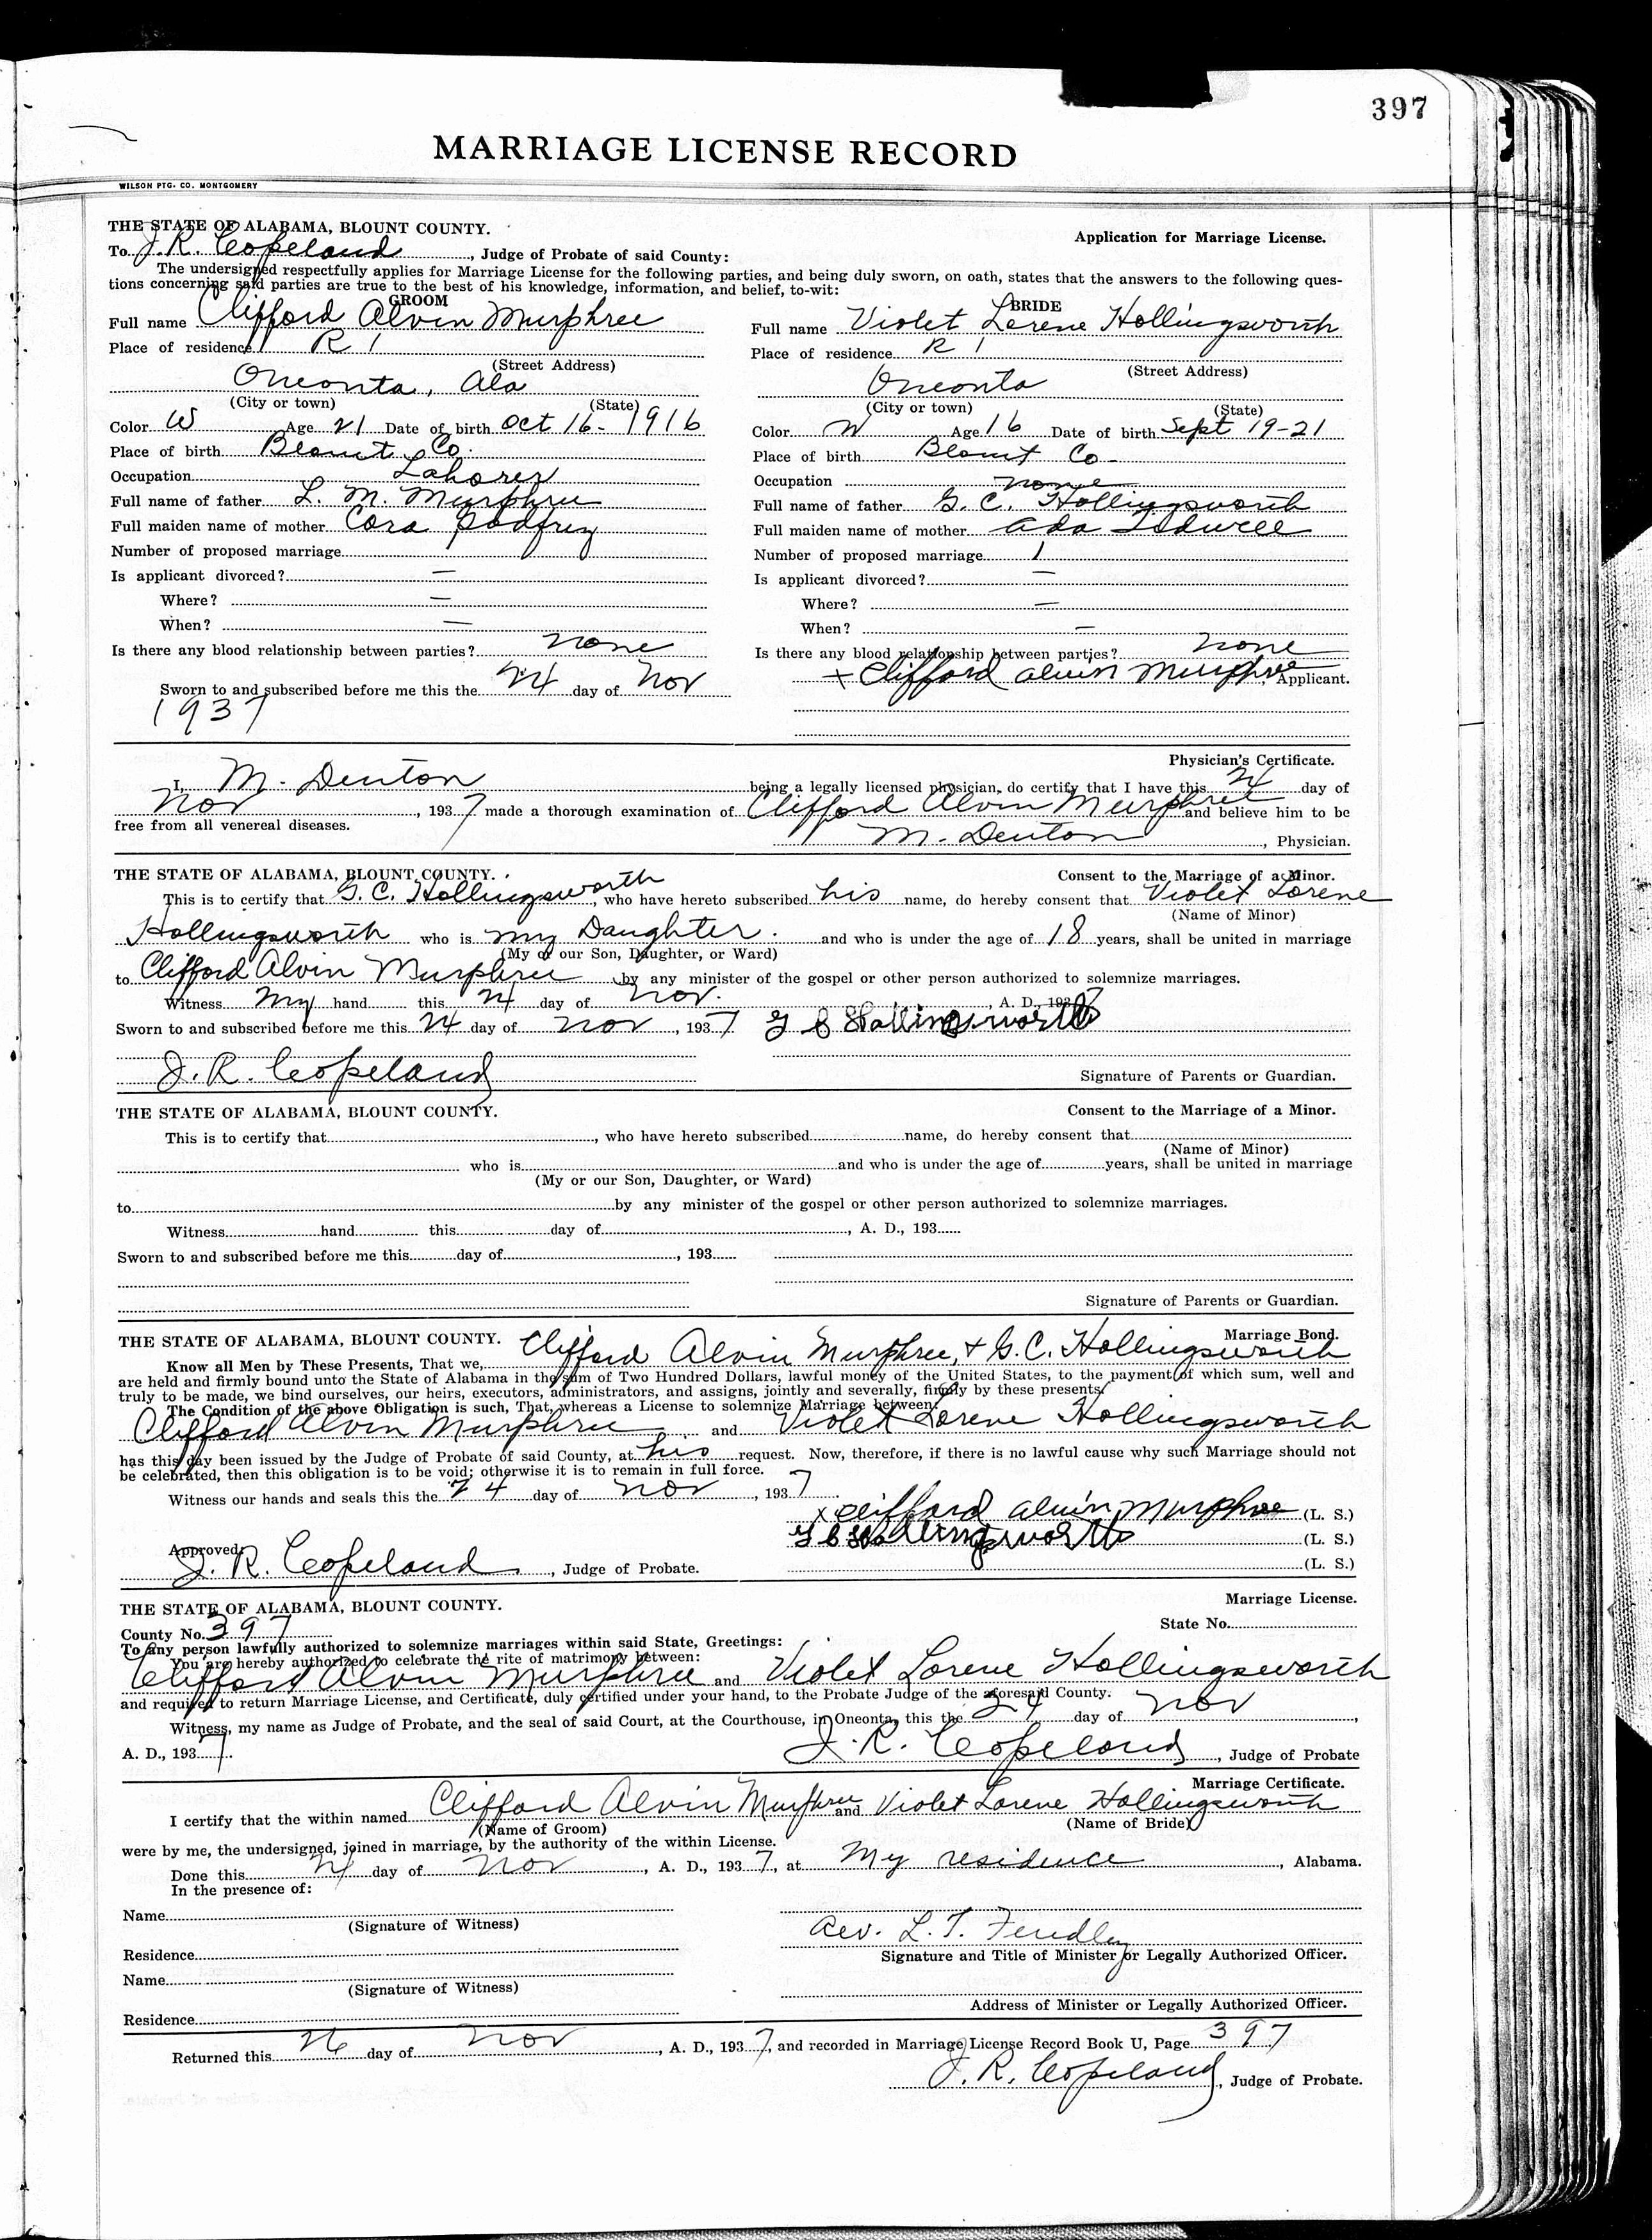 397
MARRIAGE LICENSE RECORD
WILSON PTG. CO. MONTGOMERY
THE STATE OF ALABAMA, BLOUNT COUNTY.
Application for Marriage License.
To J. R. Copeland, Judge of Probate of said County:
The undersigned respectfully applies for Marriage License for the following parties, and being duly sworn, on oath, states that the answers to the following ques-
tions concerning said parties are true to the best of his knowledge, information, and belief, to-wit:
GROOM
Full name Clifford Alvin Murphree
Place of residence R 1
(Street Address)
Oneonta, Ala
(City or town) (State)
Color W Age 21 Date of birth Oct 16 - 1916
Place of birth Blount Co.
Occupation Laborer
Full name of father L. M. Murphree
Full maiden name of mother Cora Godfrey
Number of proposed marriage
Is applicant divorced? —
Where? —
When? —
Is there any blood relationship between parties? none
Sworn to and subscribed before me this the 24 day of Nov
1937
BRIDE
Full name Violet Lorene Hollingsworth
Place of residence R 1
(Street Address)
Oneonta
(City or town) (State)
Color W Age 16 Date of birth Sept 19-21
Place of birth Blount Co -
Occupation none
Full name of father G. C. Hollingsworth
Full maiden name of mother Ada Tidwell
Number of proposed marriage 1
Is applicant divorced? —
Where? —
When? —
Is there any blood relationship between parties? none
x Clifford alvin Murphree, Applicant.
Physician's Certificate.
I, M. Denton being a legally licensed physician, do certify that I have this 24 day of
Nov, 1937 made a thorough examination of Clifford Alvin Murphree and believe him to be
free from all venereal diseases.
M. Denton, Physician.
THE STATE OF ALABAMA, BLOUNT COUNTY.
Consent to the Marriage of a Minor.
This is to certify that G. C. Hollingsworth, who have hereto subscribed his name, do hereby consent that Violet Lorene
(Name of Minor)
Hollingsworth who is my Daughter. and who is under the age of 18 years, shall be united in marriage
(My or our Son, Daughter, or Ward)
to Clifford Alvin Murphree by any minister of the gospel or other person authorized to solemnize marriages.
Witness my hand this 24 day of Nov., A. D., 1937
Sworn to and subscribed before me this 24 day of Nov, 1937 G C Hollingsworth
J. R. Copeland
Signature of Parents or Guardian.
THE STATE OF ALABAMA, BLOUNT COUNTY.
Consent to the Marriage of a Minor.
This is to certify that, who have hereto subscribed name, do hereby consent that
(Name of Minor)
who is and who is under the age of years, shall be united in marriage
(My or our Son, Daughter, or Ward)
to by any minister of the gospel or other person authorized to solemnize marriages.
Witness hand this day of, A. D., 193
Sworn to and subscribed before me this day of, 193
Signature of Parents or Guardian.
THE STATE OF ALABAMA, BLOUNT COUNTY.
Marriage Bond.
Know all Men by These Presents, That we, Clifford Alvin Murphree, + G. C. Hollingsworth
are held and firmly bound unto the State of Alabama in the sum of Two Hundred Dollars, lawful money of the United States, to the payment of which sum, well and
truly to be made, we bind ourselves, our heirs, executors, administrators, and assigns, jointly and severally, firmly by these presents.
The Condition of the above Obligation is such, That, whereas a License to solemnize Marriage between:
Clifford Alvin Murphree and Violet Lorene Hollingsworth
has this day been issued by the Judge of Probate of said County, at his request. Now, therefore, if there is no lawful cause why such Marriage should not
be celebrated, then this obligation is to be void; otherwise it is to remain in full force.
Witness our hands and seals this the 24 day of Nov, 1937
x Clifford alvin Murphree (L. S.)
G C Hollingsworth (L. S.)
Approved:
J. R. Copeland, Judge of Probate.
(L. S.)
THE STATE OF ALABAMA, BLOUNT COUNTY.
Marriage License.
County No. 397
State No.
To any person lawfully authorized to solemnize marriages within said State, Greetings:
You are hereby authorized to celebrate the rite of matrimony between:
Clifford Alvin Murphree and Violet Lorene Hollingsworth
and required to return Marriage License, and Certificate, duly certified under your hand, to the Probate Judge of the aforesaid County.
Witness, my name as Judge of Probate, and the seal of said Court, at the Courthouse, in Oneonta, this the 24 day of Nov,
A. D., 1937.
J. R. Copeland, Judge of Probate
Marriage Certificate.
I certify that the within named Clifford Alvin Murphree and Violet Lorene Hollingsworth
(Name of Groom) (Name of Bride)
were by me, the undersigned, joined in marriage, by the authority of the within License.
Done this 24 day of Nov, A. D., 1937, at My residence, Alabama.
In the presence of:
Name
(Signature of Witness)
Rev. L. T. Fendley
Residence
Signature and Title of Minister or Legally Authorized Officer.
Name
(Signature of Witness)
Residence
Address of Minister or Legally Authorized Officer.
Returned this 26 day of Nov, A. D., 1937, and recorded in Marriage License Record Book U, Page 397
J. R. Copeland, Judge of Probate.